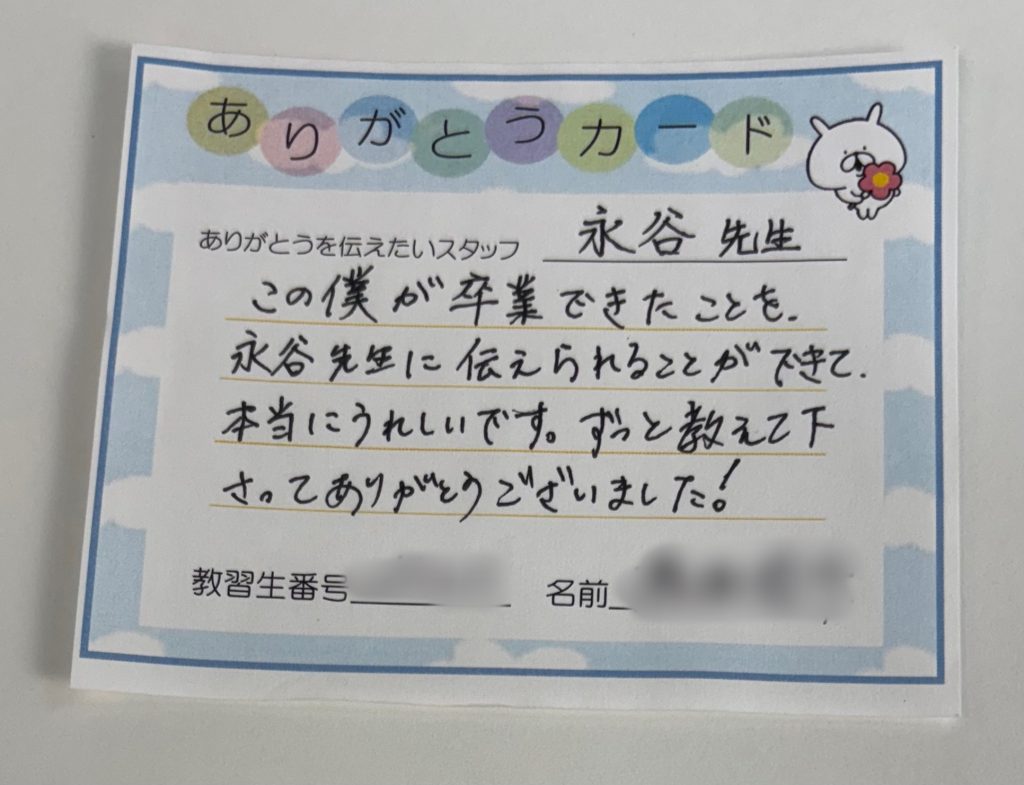 ありがとうカード
ありがとうを伝えたいスタッフ 永谷 先生
この僕が卒業できたことを、
永谷先生に伝えられることができて、
本当にうれしいです。ずっと教えて下
さってありがとうございました！
教習生番号 名前